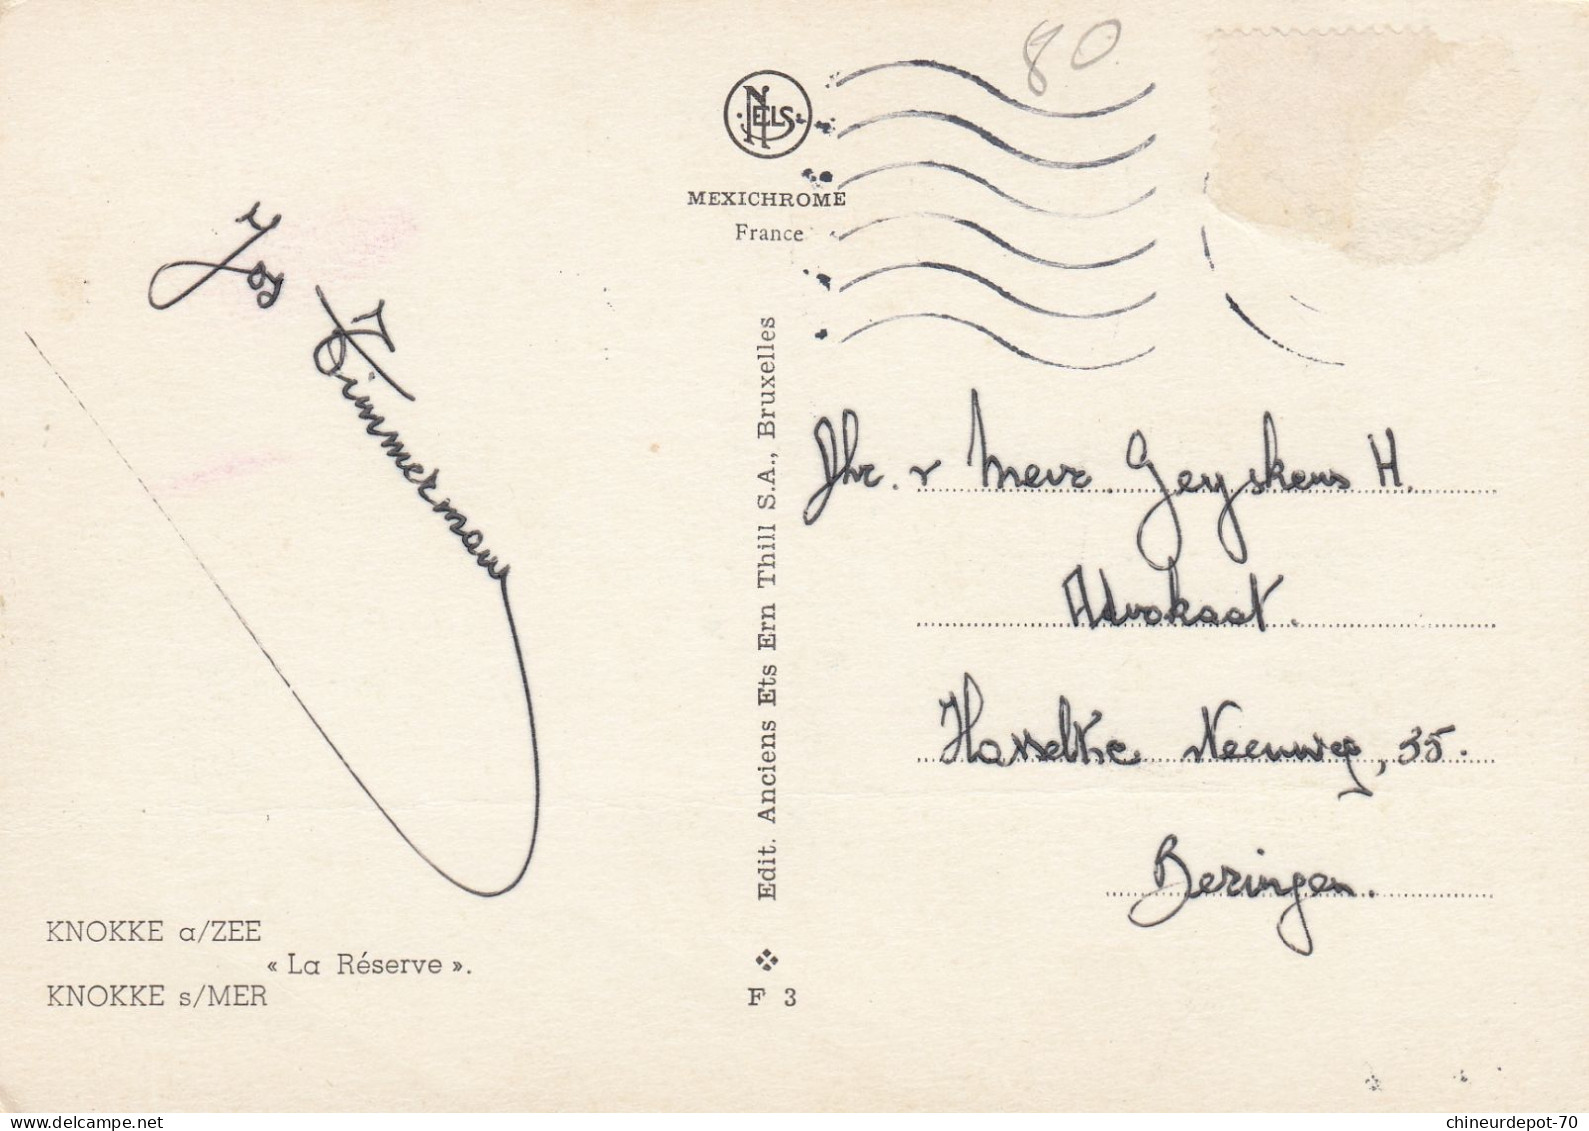 80
NELS
MEXICHROME
France
Jos Timmermans
Edit. Anciens Ets Ern Thill S.A., Bruxelles
Dhr. v Mevr. Geyskens H.
Advokaat.
Hasseltse steenweg, 35.
Beringen.
KNOKKE a/ZEE
« La Réserve ».
KNOKKE s/MER
F 3
chineurdepot-70